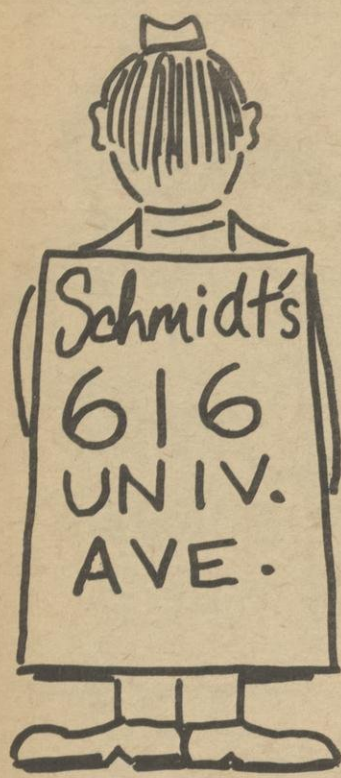 Schmidt's
616
UNIV.
AVE.